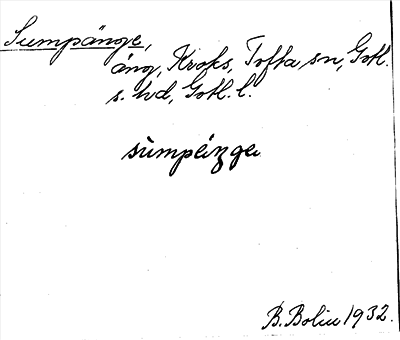 Sumpänge,
äng, Kroks, Tofta sn, Gotl.
s. hd, Gotl. l.
B. Bolin 1932.